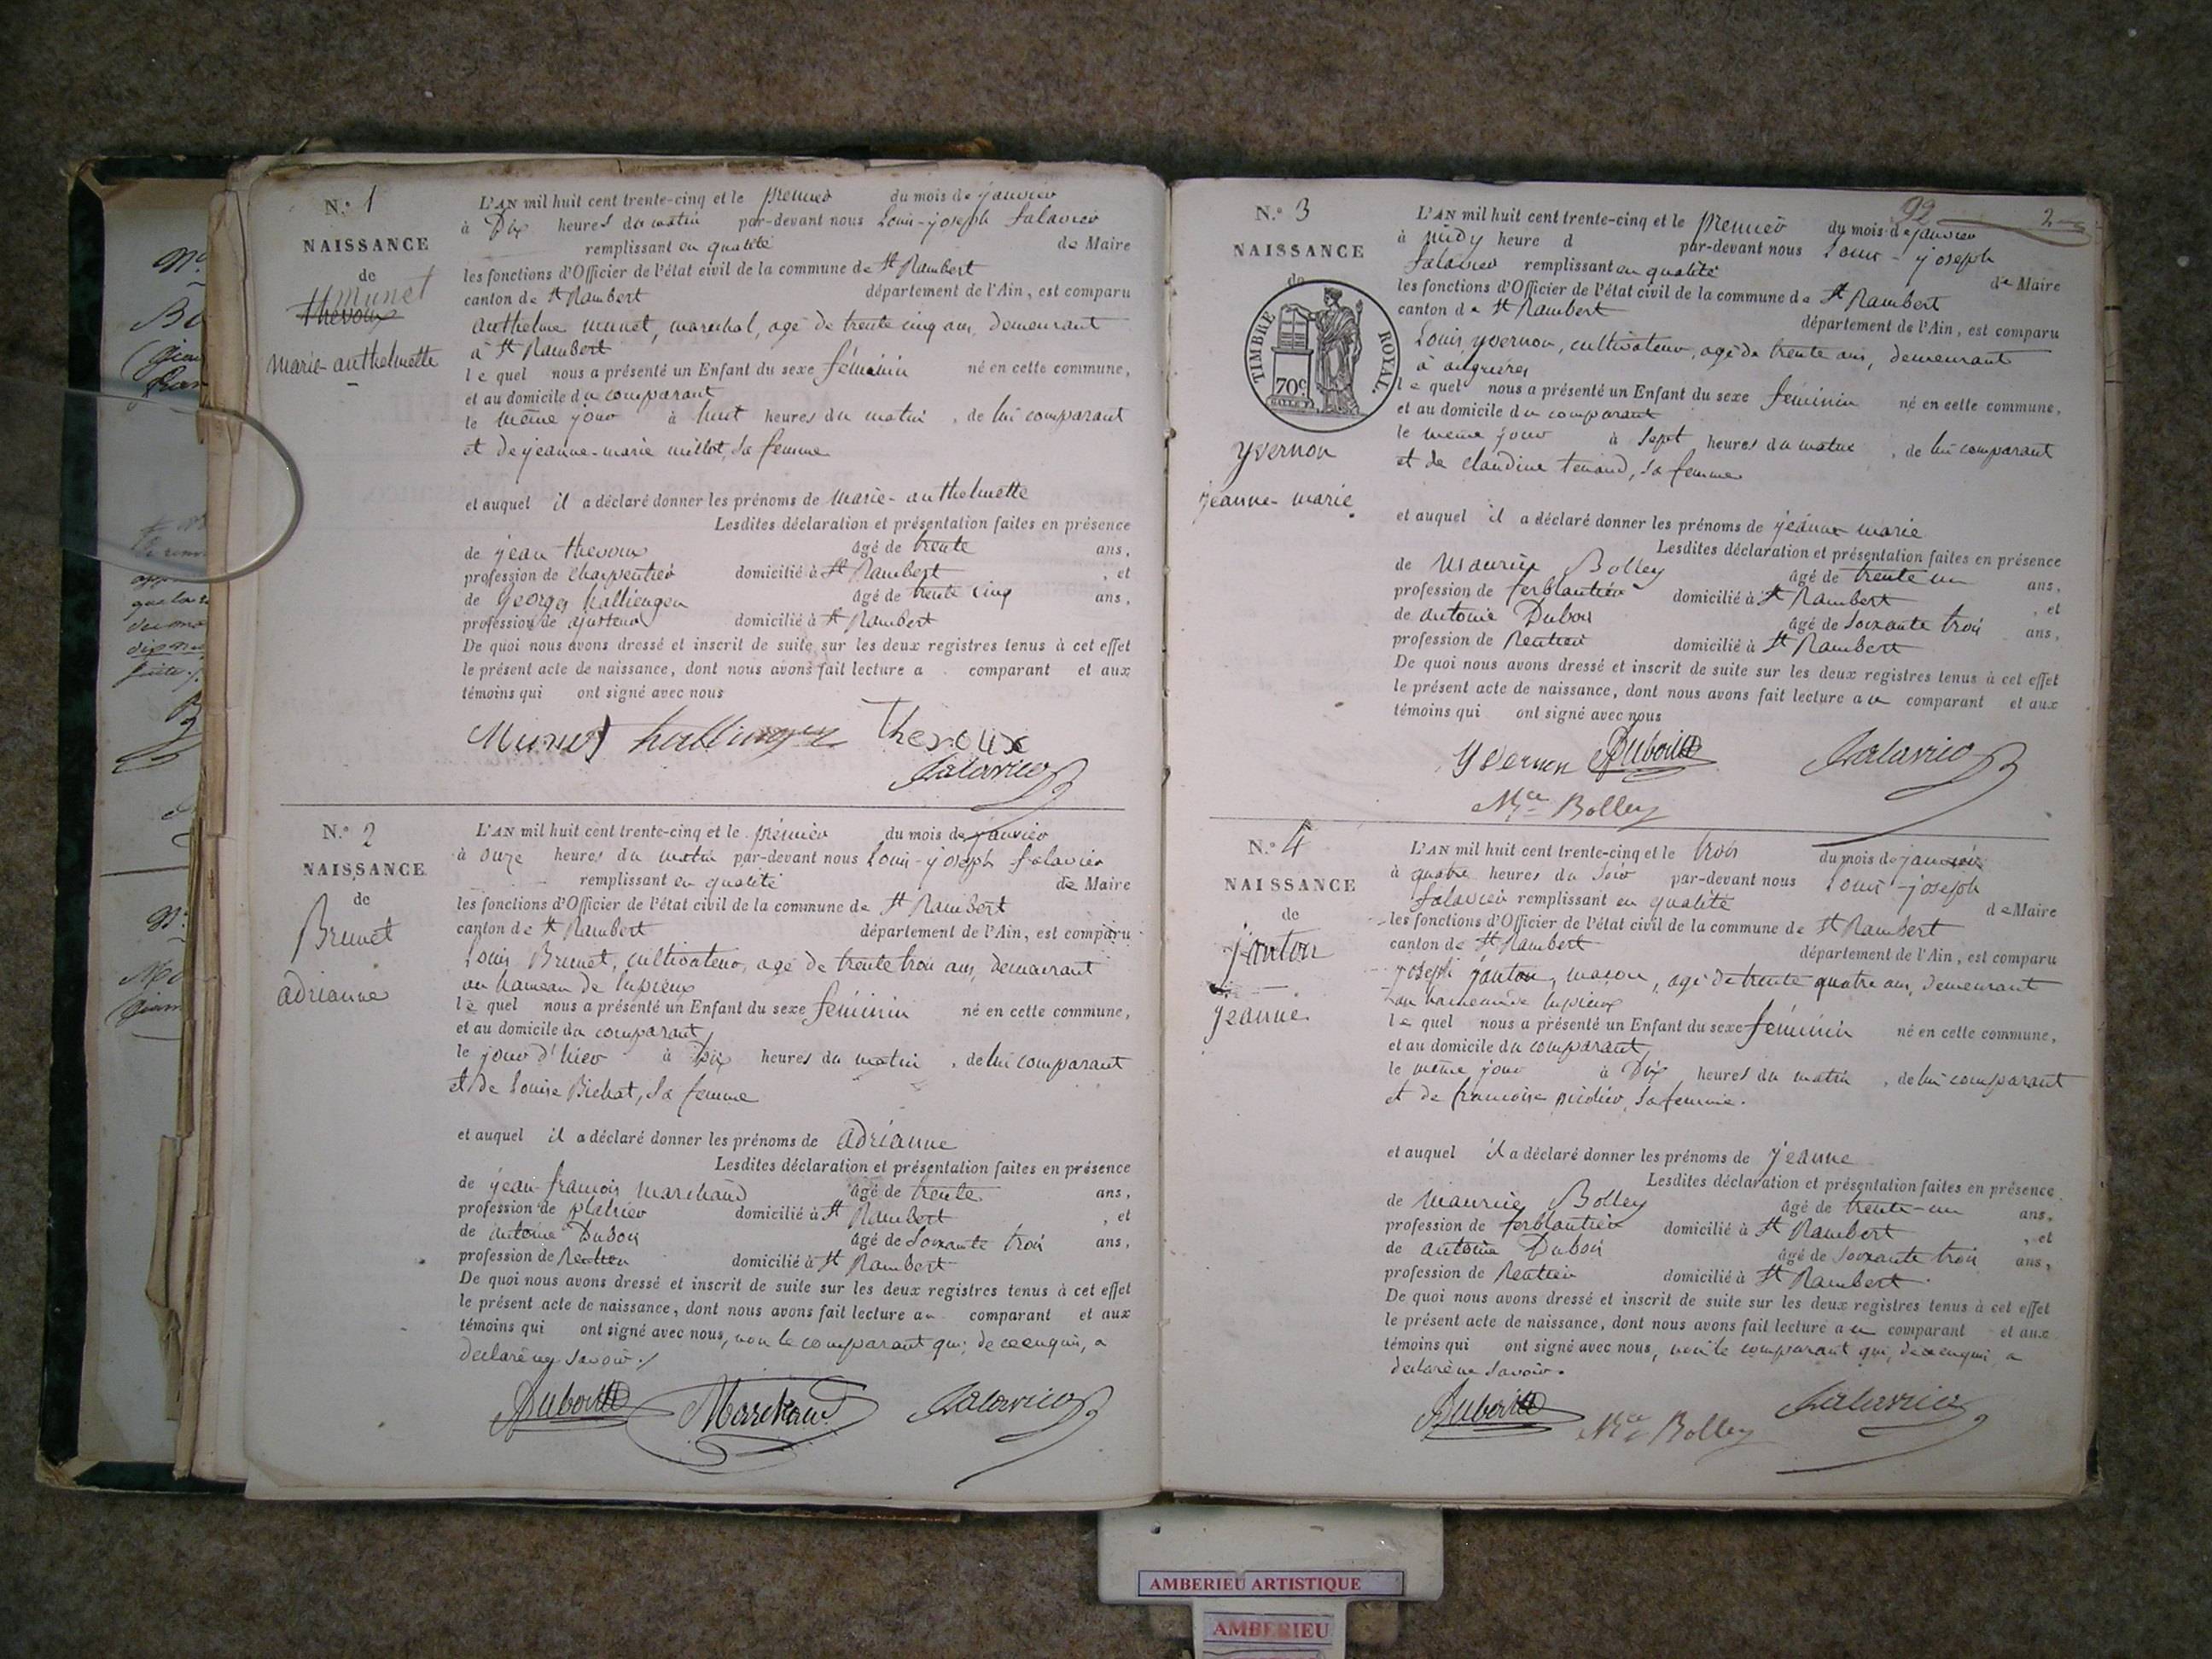 N.° 1
NAISSANCE
de
Munet
Thevoux
Marie-anthelmette
L'AN mil huit cent trente-cinq et le premier du mois de janvier
à Dix heures du matin par-devant nous Louis-joseph Salavier
remplissant en qualité de Maire
les fonctions d'Officier de l'état civil de la commune de St Rambert
canton de St Rambert département de l'Ain, est comparu
anthelme munet, marechal, agé de trente cinq ans, demeurant
à St Rambert
le quel nous a présenté un Enfant du sexe féminin né en cette commune,
et au domicile du comparant
le même jour à huit heures du matin, de lui comparant
et de jeanne-marie millot, sa femme
et auquel il a déclaré donner les prénoms de Marie-anthelmette
Lesdites déclaration et présentation faites en présence
de jean thevoux âgé de trente ans,
profession de charpentier domicilié à St Rambert, et
de Georges âgé de trente cinq ans,
profession de ajusteur domicilié à St Rambert
De quoi nous avons dressé et inscrit de suite sur les deux registres tenus à cet effet
le présent acte de naissance, dont nous avons fait lecture a comparant et aux
témoins qui ont signé avec nous
Munet Thevoux
Salavier
N.° 2
NAISSANCE
de
Brunet
adrianne
L'AN mil huit cent trente-cinq et le premier du mois de janvier
à onze heures du matin par-devant nous Louis-joseph Salavier
remplissant en qualité de Maire
les fonctions d'Officier de l'état civil de la commune de St Rambert
canton de St Rambert département de l'Ain, est comparu
Louis Brunet, cultivateur, agé de trente trois ans, demeurant
au hameau de lupieux
le quel nous a présenté un Enfant du sexe féminin né en cette commune,
et au domicile du comparant,
le jour d'hier à Dix heures du matin, de lui comparant
et de Louise Bichat, sa femme
et auquel il a déclaré donner les prénoms de adrianne
Lesdites déclaration et présentation faites en présence
de jean-francois Marchand âgé de trente ans,
profession de platrier domicilié à St Rambert, et
de antoine Dubois âgé de soixante trois ans,
profession de Rentier domicilié à St Rambert
De quoi nous avons dressé et inscrit de suite sur les deux registres tenus à cet effet
le présent acte de naissance, dont nous avons fait lecture au comparant et aux
témoins qui ont signé avec nous, non le comparant qui, de ce enquis, a
declaré ne savoir./
Dubois Marchand Salavier
92 2
N.° 3
NAISSANCE
de
TIMBRE ROYAL
70c
yvernon
jeanne-marie
L'AN mil huit cent trente-cinq et le premier du mois de janvier
à midy heure d par-devant nous Louis-joseph
Salavier remplissant en qualité de Maire
les fonctions d'Officier de l'état civil de la commune de St Rambert
canton de St Rambert département de l'Ain, est comparu
Louis yvernon, cultivateur, agé de trente ans, demeurant
à angrieres
le quel nous a présenté un Enfant du sexe féminin né en cette commune,
et au domicile du comparant
le même jour à sept heures du matin, de lui comparant
et de claudine tenand, sa femme
et auquel il a déclaré donner les prénoms de jeanne marie
Lesdites déclaration et présentation faites en présence
de Maurice Bolley âgé de trente un ans,
profession de ferblantier domicilié à St Rambert, et
de antoine Dubois âgé de soixante trois ans,
profession de Rentier domicilié à St Rambert
De quoi nous avons dressé et inscrit de suite sur les deux registres tenus à cet effet
le présent acte de naissance, dont nous avons fait lecture au comparant et aux
témoins qui ont signé avec nous
yvernon Dubois Salavier
Mce Bolley
N.° 4
NAISSANCE
de
janton
jeanne
L'AN mil huit cent trente-cinq et le trois du mois de janvier
à quatre heures du soir par-devant nous Louis-joseph
Salavier remplissant en qualité de Maire
les fonctions d'Officier de l'état civil de la commune de St Rambert
canton de St Rambert département de l'Ain, est comparu
joseph janton, maçon, agé de trente quatre ans, demeurant
au hameau de lupieux
le quel nous a présenté un Enfant du sexe féminin né en cette commune,
et au domicile du comparant
le même jour à Dix heures du matin, de lui comparant
et de francoise sa femme.
et auquel il a déclaré donner les prénoms de jeanne
Lesdites déclaration et présentation faites en présence
de Maurice Bolley âgé de trente-un ans,
profession de ferblantier domicilié à St Rambert, et
de antoine Dubois âgé de soixante trois ans,
profession de Rentier domicilié à St Rambert.
De quoi nous avons dressé et inscrit de suite sur les deux registres tenus à cet effet
le présent acte de naissance, dont nous avons fait lecture au comparant et aux
témoins qui ont signé avec nous, non le comparant qui, de ce enquis a
declaré ne savoir.
Dubois Mce Bolley Salavier
AMBERIEU ARTISTIQUE
AMBERIEU